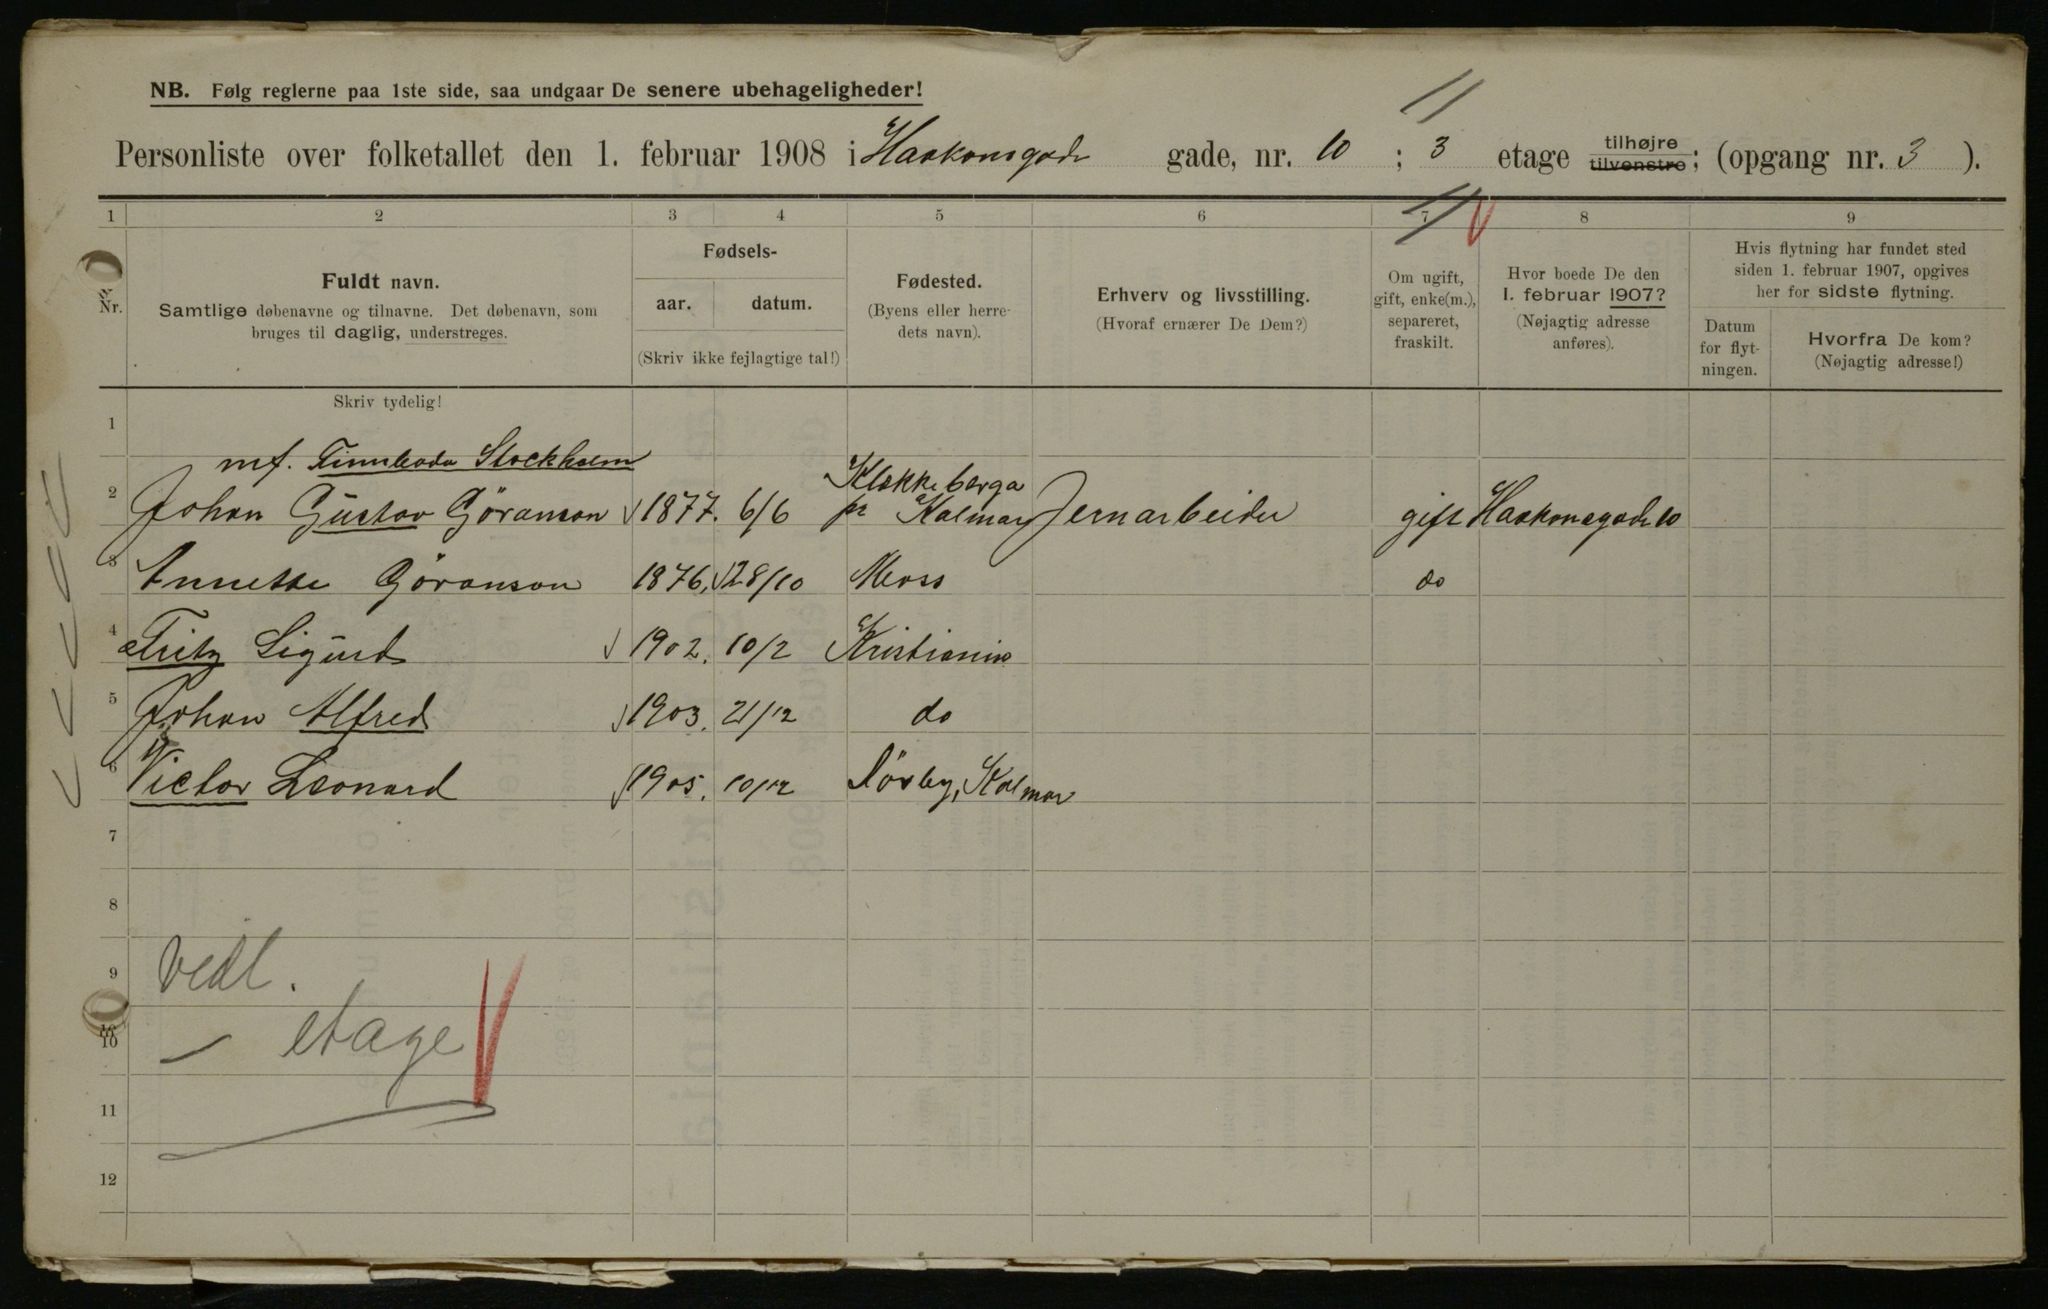 NB. Følg reglerne paa 1ste side, saa undgaar De senere ubehageligheder!
Personliste over folketallet den 1. februar 1908 i Haakonsgade gade, nr. 10 ; 3 etage tilhøjre tilvenstre; (opgang nr. 3 ).
1 2 3 4 5 6 7 8 9
Nr.
Fuldt navn.
Samtlige døbenavne og tilnavne. Det døbenavn, som
bruges til daglig, understreges.
Fødsels-
aar. datum.
(Skriv ikke fejlagtige tal!)
Fødested.
(Byens eller herre-
dets navn).
Erhverv og livsstilling.
(Hvoraf ernærer De Dem?)
Om ugift,
gift, enke(m.),
separeret,
fraskilt.
Hvor boede De den
1. februar 1907?
(Nøjagtig adresse
anføres).
Hvis flytning har fundet sted
siden 1. februar 1907, opgives
her for sidste flytning.
Datum
for flyt-
ningen.
Hvorfra De kom?
(Nøjagtig adresse!)
Skriv tydelig!
1
mf. Finnboda Stockholm
2 Johan Gustav Göranson 1877. 6/6 Klakkeberga pr Kalmar Jernarbeider gift Haakonsgade 10
3 Annette Göranson 1876. 28/10 Moss do
4 Fritz Sigurd 1902. 10/2 Kristiania
5 Johan Alfred 1903. 21/12 do
6 Victor Leonard 1905. 10/12 Dörby, Kalmar
7
8
9 vedl.
10 – etage
11
12